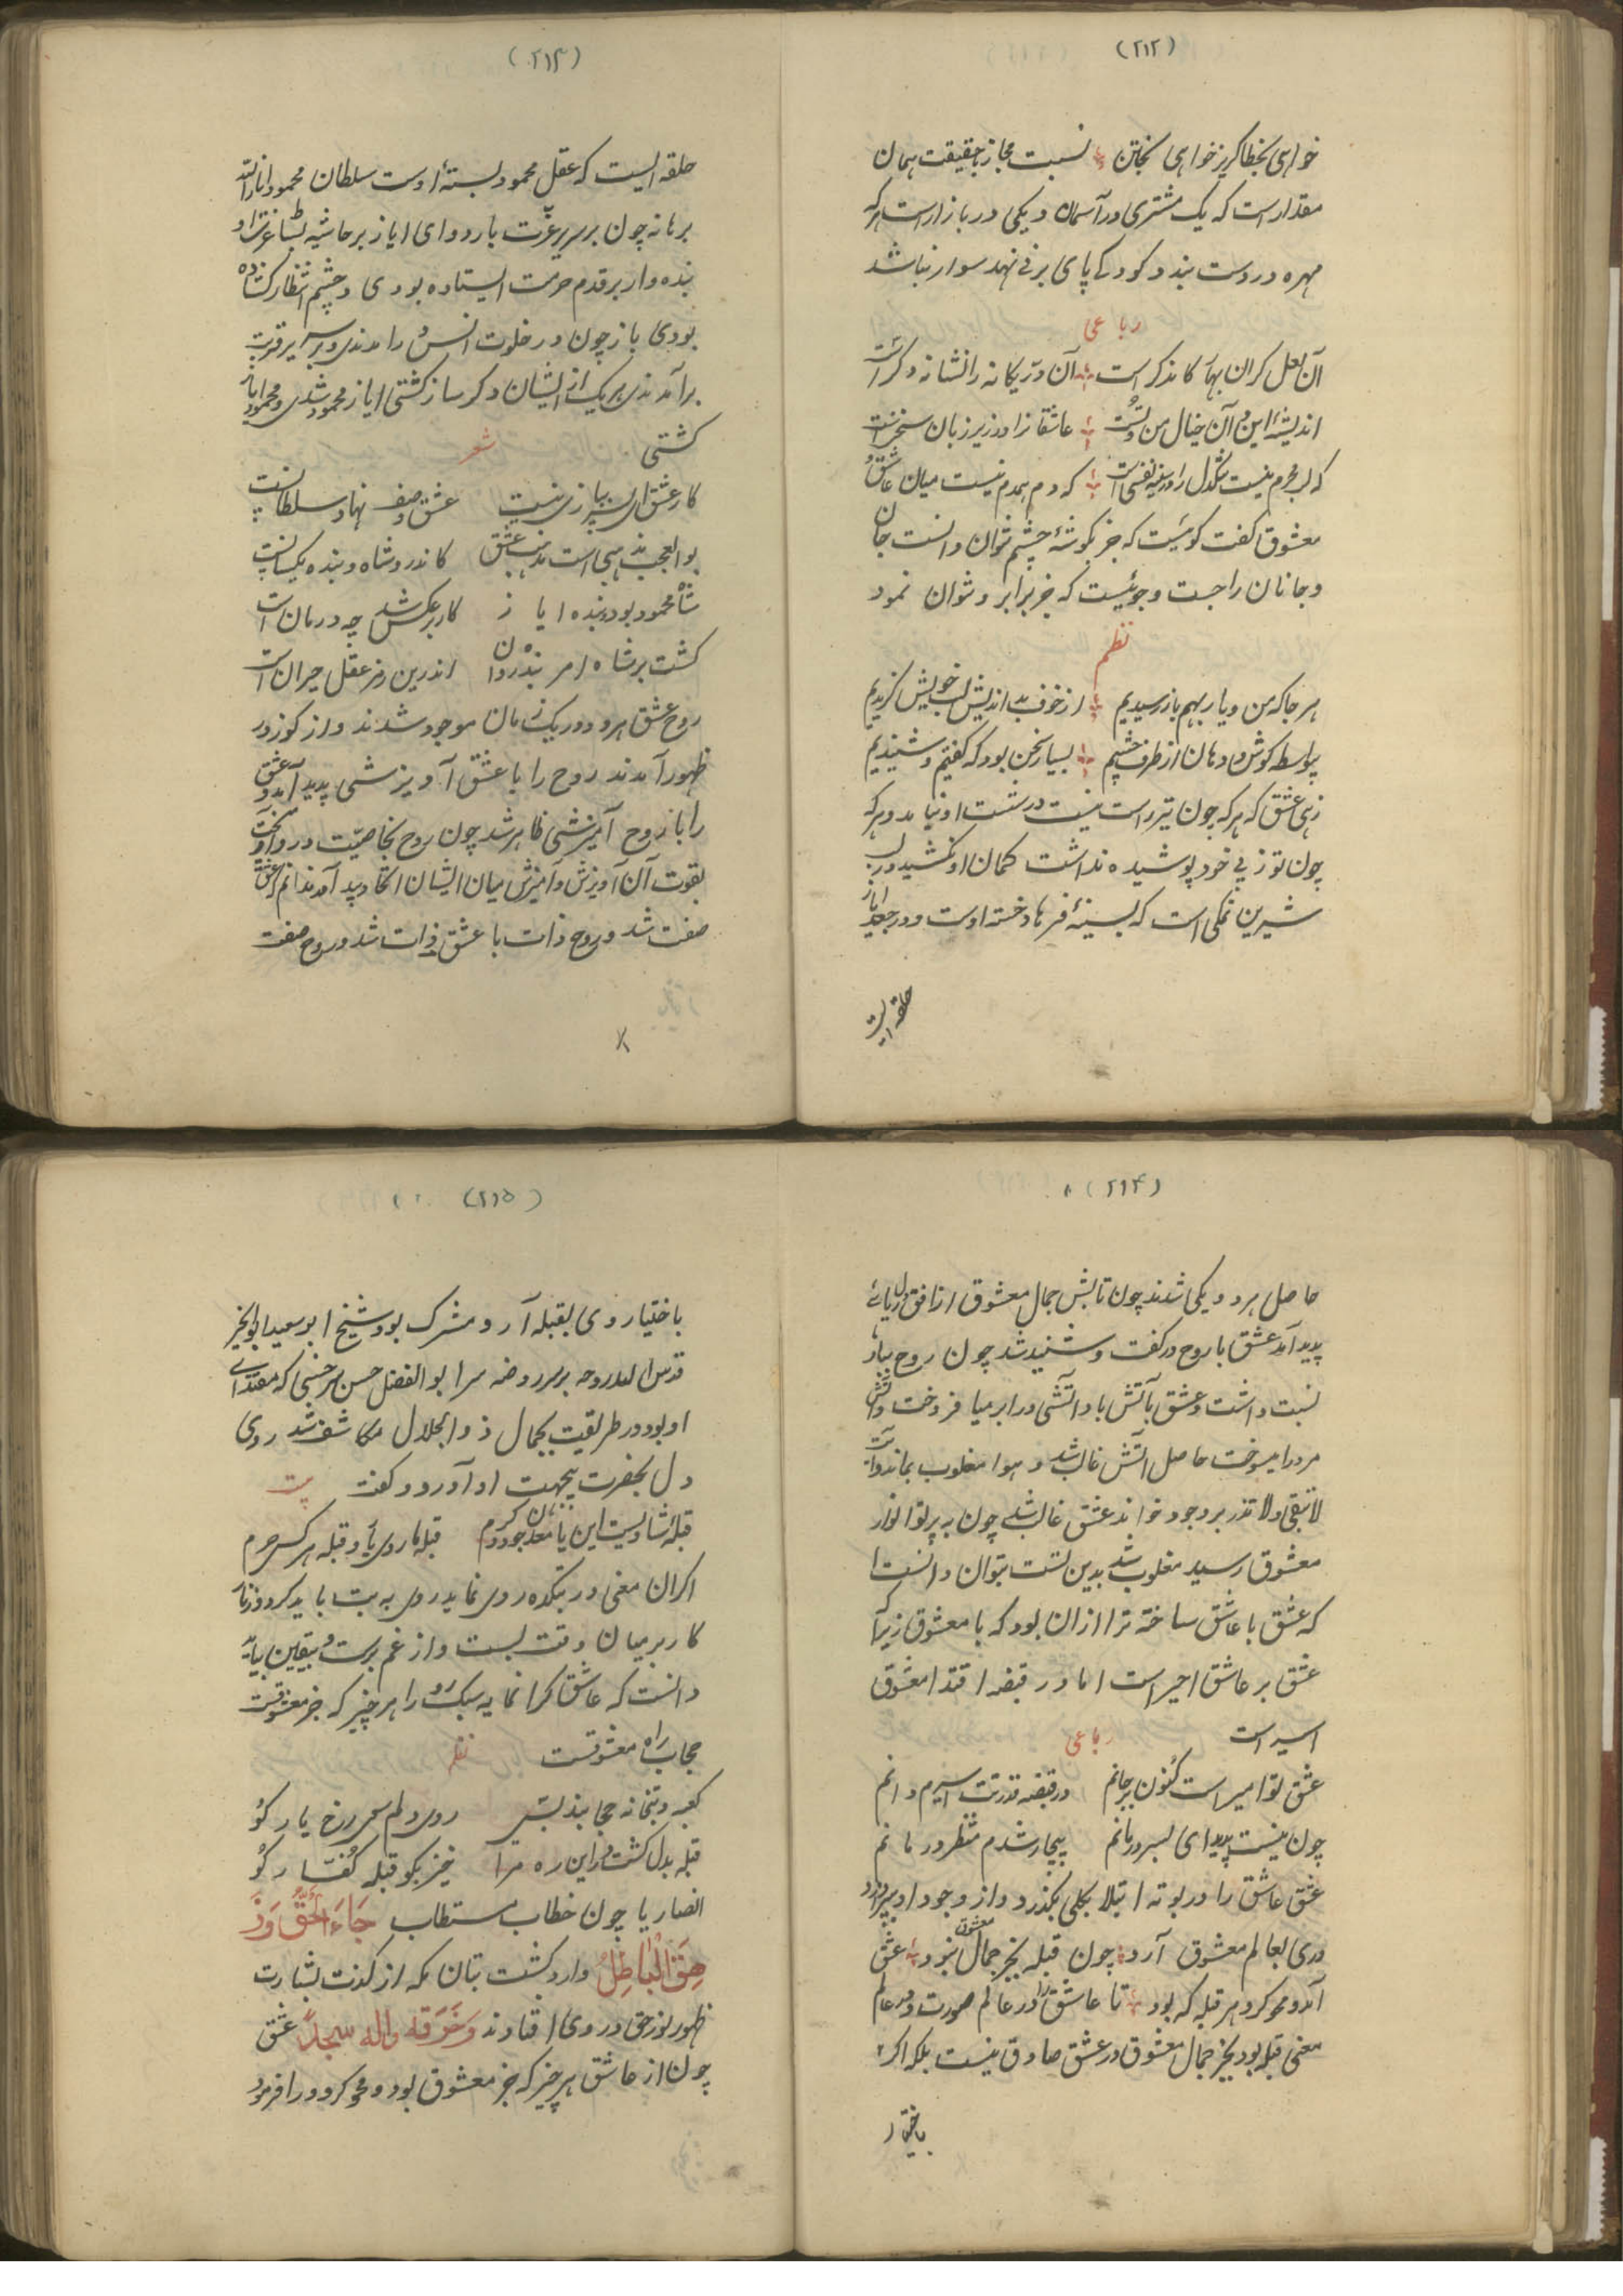 (۲۱۲)
خواهی بخطا کریز خواهی بختن نسبت مجاز بحقیقت همان
مقدار است که یک مشتری در آسمان و یکی در بازار است هر که
مهره در دست بندد کودکی پای بر نی نهد سوار نباشد
رباعی
آن لعل کران بها ز کان دکر است آن در یکانه را نشانه دکر است
اندیشهٔ این و آن خیال من و تست عاشقانرا در زیر زبان سخن است
که لب محرم نیست تنکدل را در سینه نفسی است که دم همدم نیست میان عاشق و
معشوق کفت کوئیست که جز بکوشهٔ چشم نتوان دانست جان
و جانان را جست و جوئیست که جز برابرو نتوان نمود
نظم
هر جا که من و یار بهم باز رسیدیم از خوف بد اندیش لب خویش کزیدیم
بیواسطه کوش و دهان از طرف چشم بسیار سخن بود که کفتیم و شنیدیم
زهی عشق که هر که چون تیر راست نیست در شست او نیامد و هر که
چون توز پی خود پوشیده نداشت کمان او نکشید در لب
شیرین نمکی است که سینهٔ فرهاد خسته اوست و در جعد ایاز
حلقه ایست
(۲۱۳)
حلقه ایست که عقل محمود بستهٔ اوست سلطان محمود انار الله
برهانه چون بر سریر عزت بار دادی ایاز بر حاشیه بساط عزت او
بنده وار بر قدم حرمت ایستاده بودی و چشم انتظار کشاده
بودی باز چون در خلوت انس در آمدندی و بر سریر قربت
برآمدندی هر یک از ایشان دکر ساز کشتی ایاز محمود شدی و محمود ایاز
کشتی شعر
کار عشق ای پسر ببازی نیست عشق وصف نهاد سلطانیست
بوالعجب مذهبی است مذهب عشق کاندرو شاه و بنده یکسانست
شاه محمود بود و بنده ایاز کار برعکس شد چه درمان است
کشت بر شاه امر بنده روان اندرین رمز عقل حیران است
روح عشق هر دو در یک زمان موجود شدند و از کوزه در
ظهور آمدند روح را با عشق آویزشی پدید آمد و عشق
را با روح آمیزشی ظاهر شد چون روح بخاصیت در و آویخت
بقوت آن آویزش و آمیزش میان ایشان اتحاد پدید آمد ندانم که عشق
صفت شد و روح ذات یا عشق ذات شد و روح صفت
(۲۱۴)
حاصل هر دو یکی شدند چون تابش جمال معشوق از افق دل ربائی
پدید آمد عشق با روح در کفت و شنید شد چون روح بباد
نسبت داشت و عشق بآتش باد آتشی در ابر میافروخت و آتش
مرورا میسوخت حاصل آتش غالب شد و هوا مغلوب بماند و آیت
لا تبقی و لا تذر بر وجود خواند عشق غالب شد چون به پرتو انوار
معشوق رسید مغلوب شد بدین نسبت بتوان دانست
که عشق با عاشق ساخته تر از ان بود که با معشوق زیرا که
عشق بر عاشق امیر است اما در قبضه اقتدار معشوق
اسیر است رباعی
عشق تو امیر است کنون بر جانم در قبضه قدرتت اسیرم دانم
چون نیست پدید ای پسر درمانم بیچاره شدم منتظر درمانم
عشق عاشق را در بوته ابتلا بکلی بکذرد و از وجود او بپردازد
و روی بعالم معشوق آرد چون قبله بجز جمال معشوق نبود عشق
آمد و محو کرد هر قبله که بود تا عاشق را در عالم صورت و در عالم
معنی قبله بود بجز جمال معشوق در عشق صادق نیست بلکه اکر
باختیار
(۲۱۵)
باختیار روی بقبله آرد مشرک بود شیخ ابو سعید ابو الخیر
قدس الله روحه بر سر روضه ابو الفضل حسن سرخسی که مقتدای
او بود در طریقت بجمال ذو الجلال مکاشف شد روی
دل بحضرت بیجهت او آورد و کفت بیت
قبله شادیست این یا معدن جود و کرم قبله ما روی یار و قبله هر کس حرم
اکر آن معنی در بتکده روی نماید روی به بت باید کرد و زنار
کار بر میان وقت بست و از غم برست و بیقین بباید
دانست که عاشق کرانمایه سبک رو را هر چیز که جز معشوقست
حجاب راه معشوقست نظم
کعبه و بتخانه حجابند بس روی دلم سوی رخ یار کو
قبله بدل کشت درین ره مرا خیز بکو قبله کفتار کو
انصار یا چون خطاب مستطاب جَاءَ الحَقُّ وَزَ
هَقَ الْبَاطِلُ وارد کشت بتان مکه از لذت بشارت
ظهور نور حق در روی افتادند وخروا له سجداً عشق
چون از عاشق هر چیز که جز معشوق بود محو کرد و را فرمود